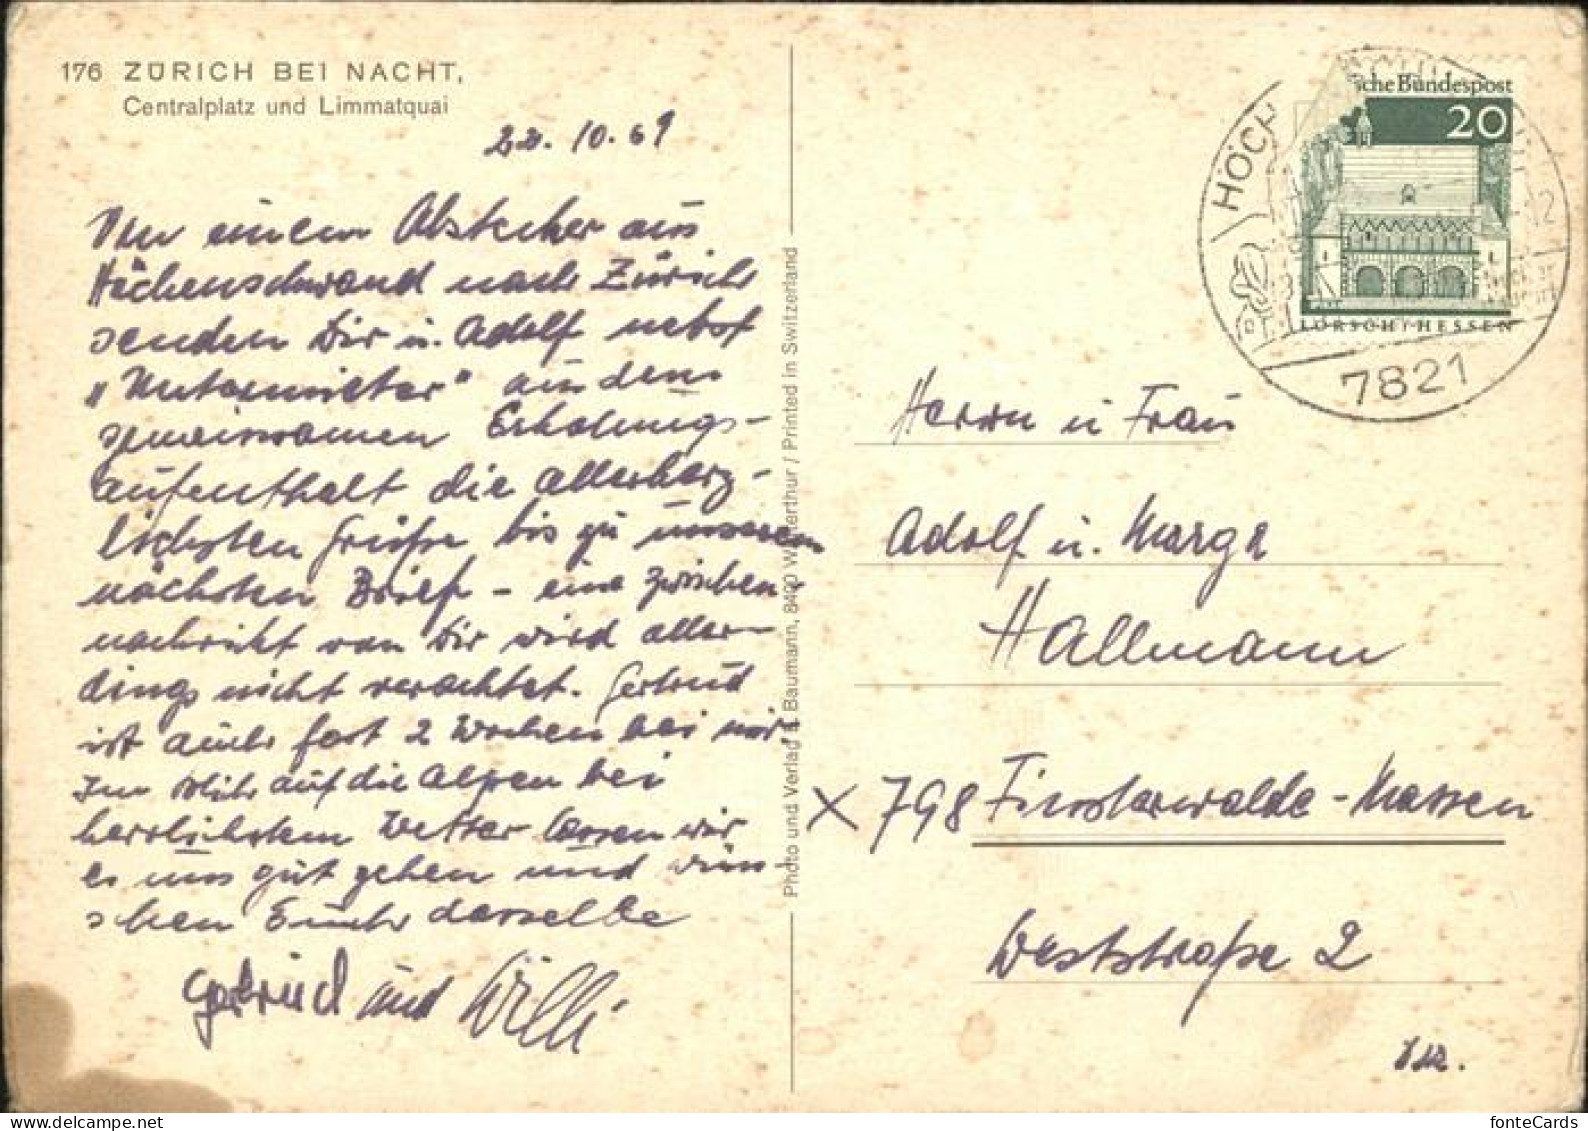 176 ZÜRICH BEI NACHT,
Centralplatz und Limmatquai
22. 10. 69
Von einem Abstecher aus
Höchenschwand nach Zürich
senden Dir u. Adolf nebst
"Untermieter" aus dem
gemeinsamen Erholungs-
aufenthalt die allerherz-
lichsten Grüße bis zu unserem
nächsten Brief - eine Zwischen-
nachricht von Dir wird aller-
dings nicht verachtet. Gertrud
ist auch fast 2 Wochen bei mir.
Im Blick auf die Alpen bei
herrlichstem Wetter lassen wir
es uns gut gehen und wün-
schen Euch dasselbe
Gertrud und Willi
Photo und Verlag Baumann, 8400 Winterthur / Printed in Switzerland
sche Bundespost
20
LORSCH/HESSEN
HÖCH
12
7821
Herrn u Frau
Adolf u. Marga
Hallmann
X 798 Finsterwalde-Massen
Weststraße 2
fonteCards